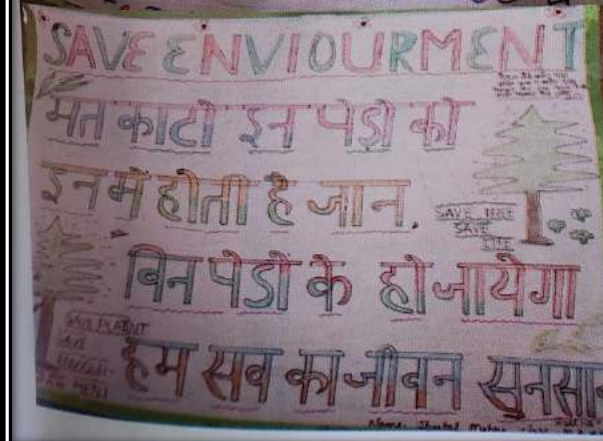 SAVE ENVIOURMENT
मत काटो इन पेडो को
इनमें होती है जान.
SAVE TREE
SAVE
LIFE
बिन पेडो के हो जायेगा
SAVE PLAENT
SAVE
हम सब का जीवन सुनसा
Name